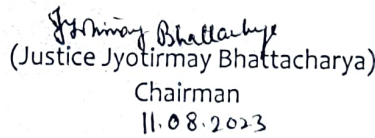 Jyotirmay Bhattacharya
(Justice Jyotirmay Bhattacharya)
Chairman
11.08.2023